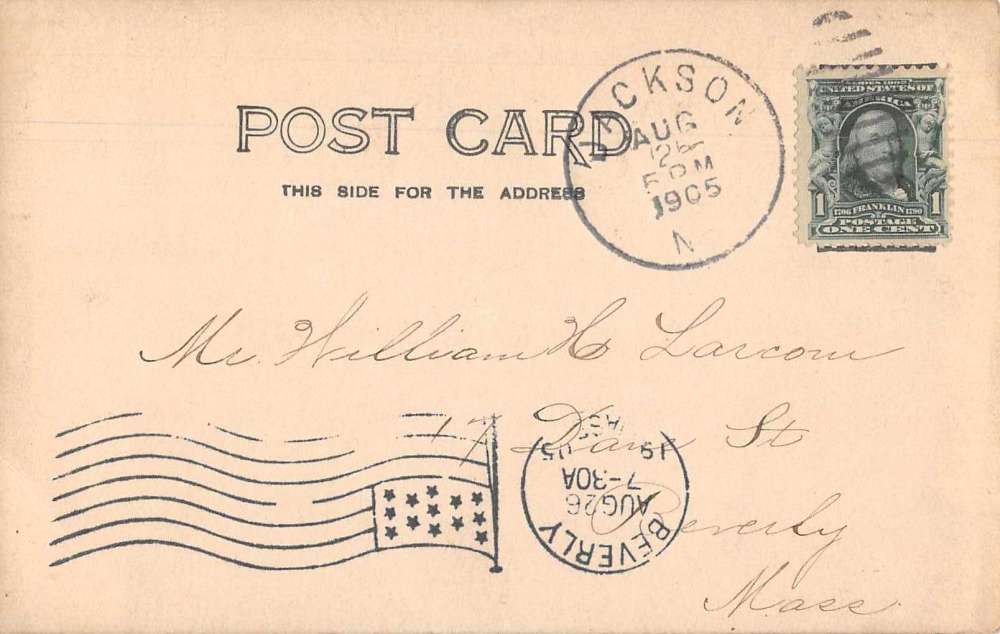 POST CARD
THIS SIDE FOR THE ADDRESS
JACKSON, N
AUG
5 PM
1905
SERIES 1902
UNITED STATES OF
AMERICA
1 1706 FRANKLIN 1790 1
POSTAGE
ONE CENT
Mr. William H Larcom
17 Dane St
Beverly
Mass
BEVERLY
AUG 26
7-30A
19 05
MASS